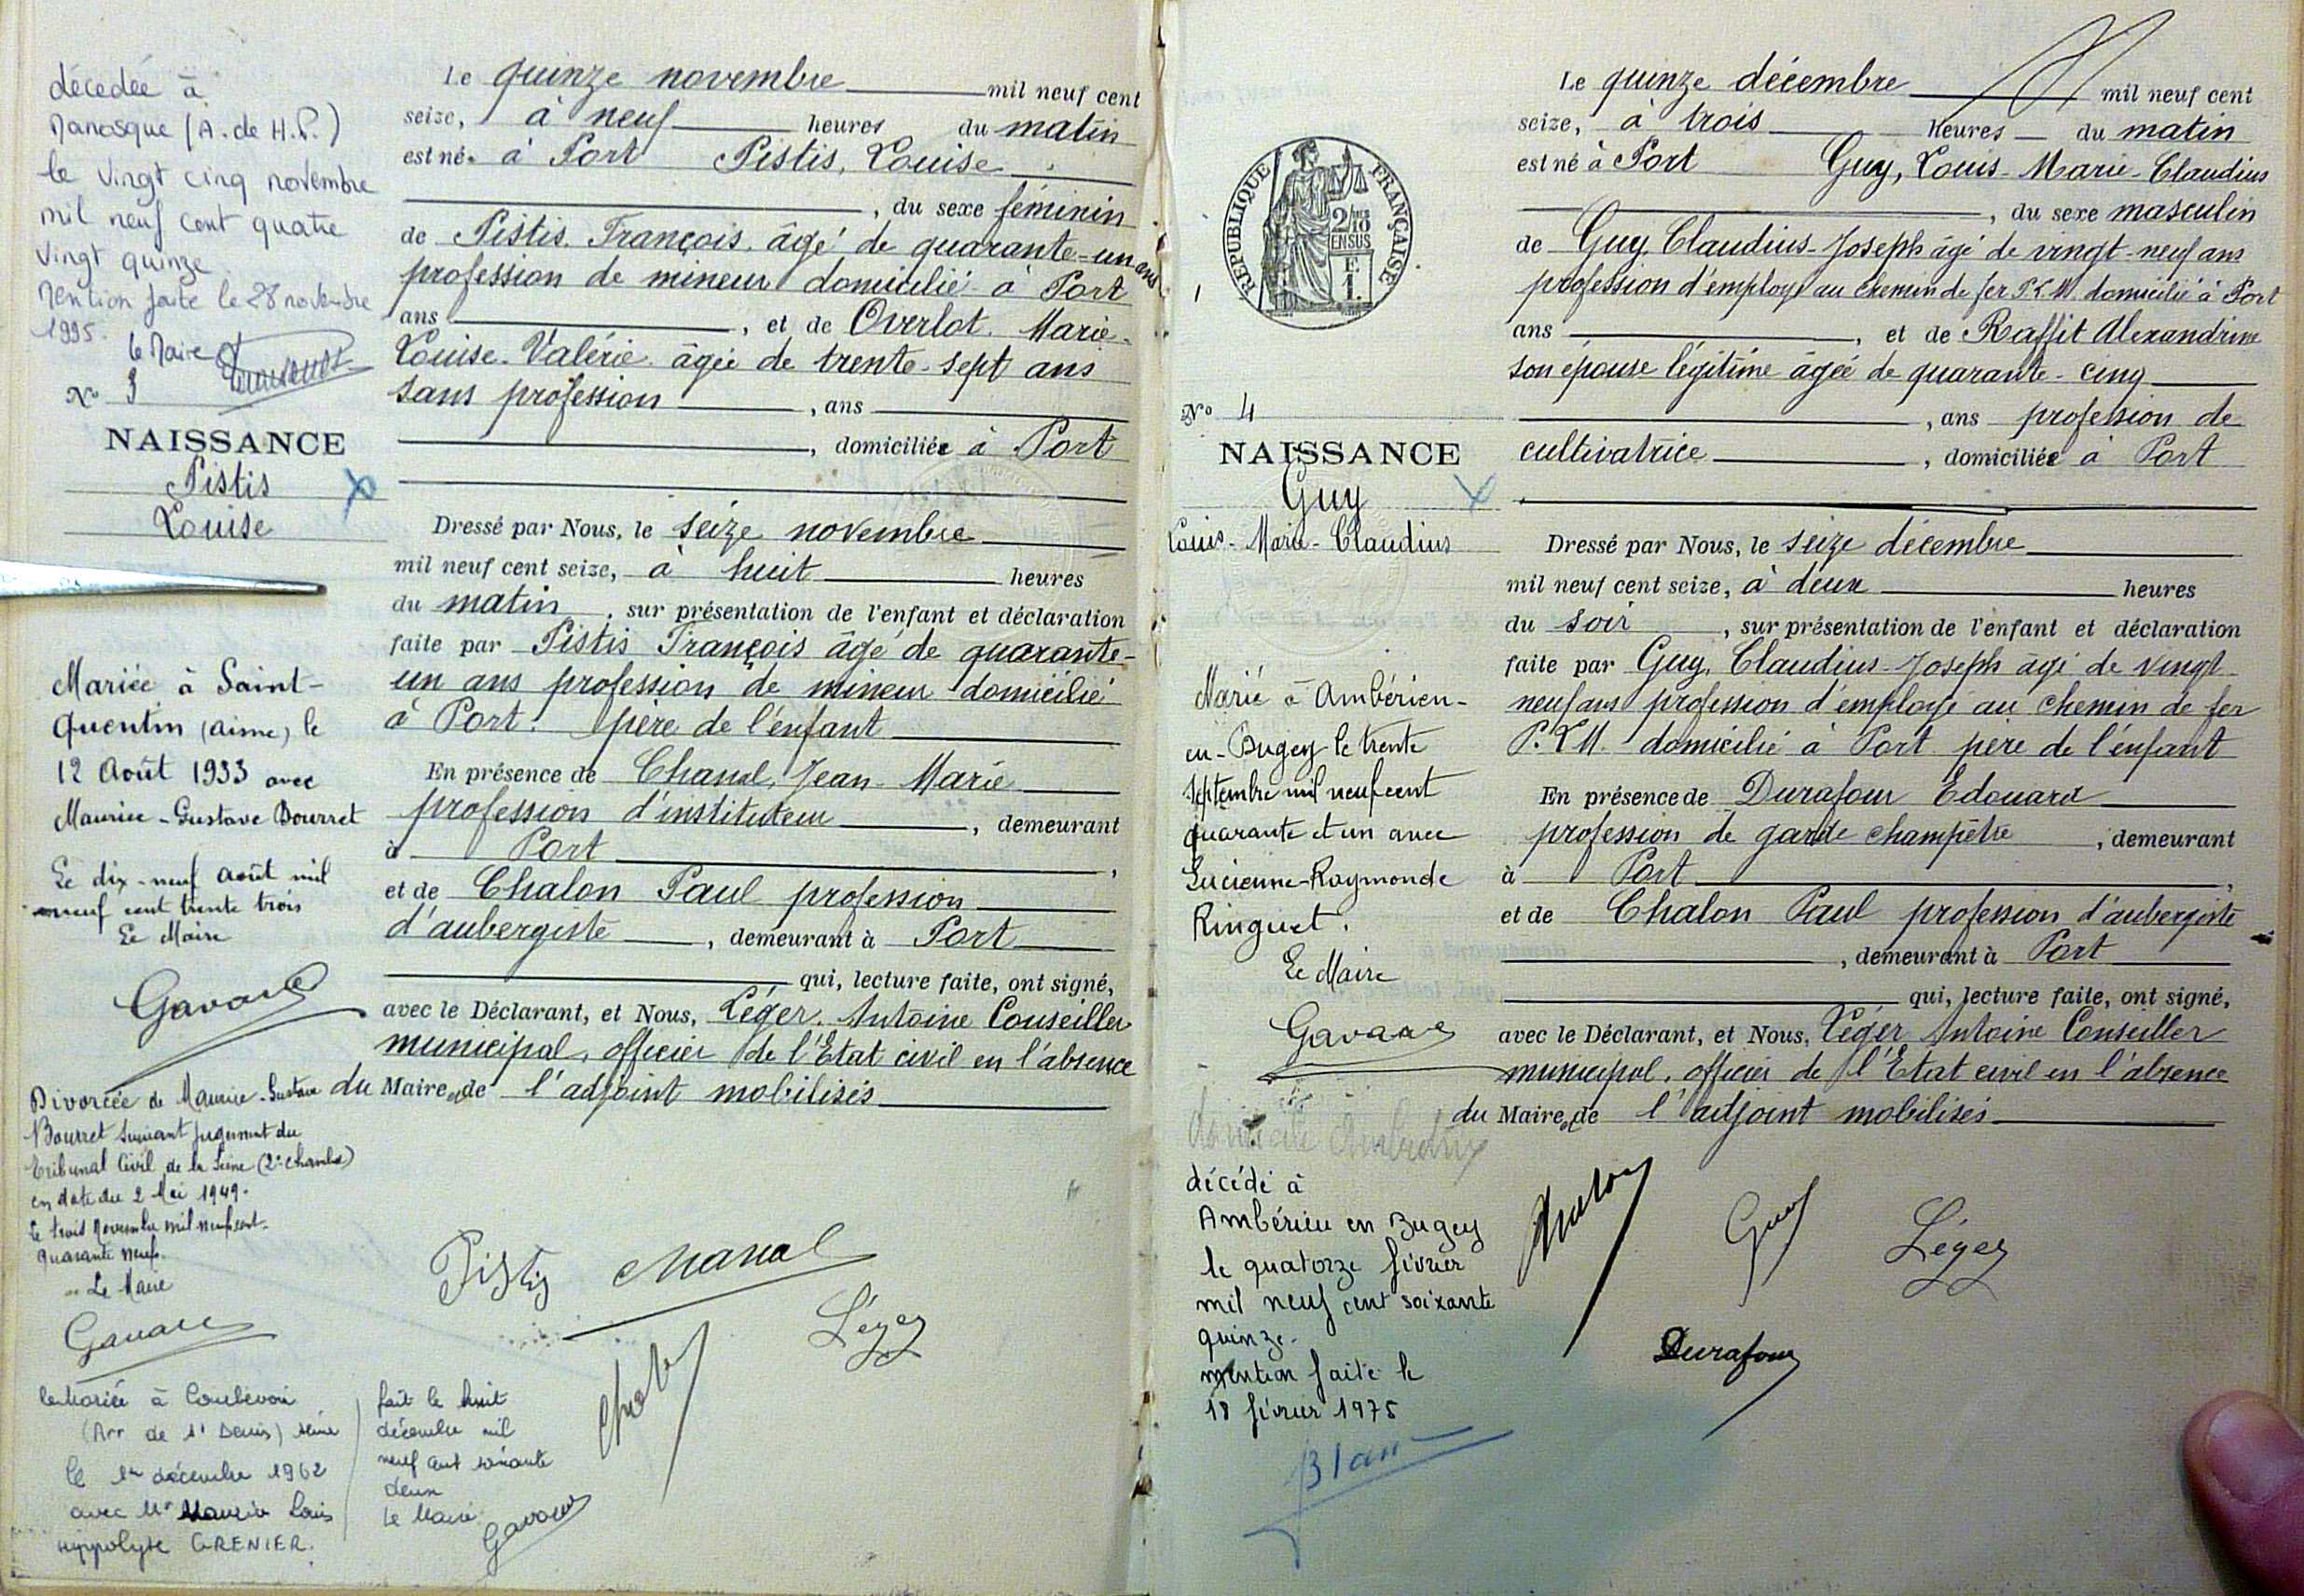 décédée à
Manosque (A. de H.P.)
le vingt cinq novembre
mil neuf cent quatre
vingt quinze
Mention faite le 28 novembre
1995.
le Maire
N° 3
NAISSANCE
Pistis
Louise
Mariée à Saint-
Quentin (aisne) le
12 Août 1933 avec
Maurice-Gustave Bourret
Le dix-neuf août mil
neuf cent trente trois
Le Maire
Gavard
Divorcée de Maurice-Gustave
Bourret suivant jugement du
Tribunal Civil de la Seine (2e chambre)
en date du 2 Mai 1949.
Le trois Novembre mil neuf cent-
quarante neuf.
Le Maire
Gavard
Remariée à Courbevoie
(Arr de St Denis) Seine
le 1er décembre 1962
avec Mr Maurice Louis
hippolyte GRENIER.
fait le huit
décembre mil
neuf cent soixante
deux
Le Maire
Gavard
Le quinze novembre mil neuf cent
seize, à neuf heures du matin
est née à Port Pistis, Louise
, du sexe féminin
de Pistis François âgé de quarante-un ans
profession de mineur domicilié à Port
ans , et de Overlot Marie-
Louise-Valérie âgée de trente-sept ans
sans profession , ans
, domiciliée à Port
Dressé par Nous, le seize novembre
mil neuf cent seize, à huit heures
du matin , sur présentation de l'enfant et déclaration
faite par Pistis François âgé de quarante-
un ans profession de mineur domicilié
à Port. père de l'enfant
En présence de Chanal, Jean-Marie
profession d'instituteur , demeurant
à Port ,
et de Chalon Paul profession
d'aubergiste , demeurant à Port
qui, lecture faite, ont signé,
avec le Déclarant, et Nous, Léger. Antoine Conseiller
municipal, officier de l'Etat civil en l'absence
du Maire et de l'adjoint mobilisés
Pistis Chanal
Léger
Chalon
RÉPUBLIQUE FRANÇAISE
2/10
EN SUS
N° 4
NAISSANCE
Guy
Louis-Marie-Claudius
Marié à Ambérieu-
en-Bugey le trente
septembre mil neuf cent
quarante et un avec
Lucienne-Raymonde
Ringuet.
Le Maire
Gavard
décédé à
Ambérieu en Bugey
le quatorze février
mil neuf cent soixante
quinze-
mention faite le
18 février 1975
Le quinze décembre mil neuf cent
seize, à trois heures du matin
est né à Port Guy, Louis-Marie-Claudius
, du sexe masculin
de Guy, Claudius-Joseph âgé de vingt-neuf ans
profession d'employé au chemin de fer P.L.M. domicilié à Port
ans , et de Raffit Alexandrine
son épouse légitime âgée de quarante-cinq
, ans profession de
cultivatrice , domiciliée à Port
Dressé par Nous, le seize décembre
mil neuf cent seize, à deux heures
du soir , sur présentation de l'enfant et déclaration
faite par Guy, Claudius-Joseph âgé de vingt
neuf ans profession d'employé au chemin de fer
P.L.M. domicilié à Port père de l'enfant
En présence de Durafour Edouard
profession de garde champêtre , demeurant
à Port ,
et de Chalon Paul profession d'aubergiste
, demeurant à Port
qui, lecture faite, ont signé,
avec le Déclarant, et Nous, Léger Antoine Conseiller
municipal, officier de l'Etat civil en l'absence
du Maire et de l'adjoint mobilisés
Chalon Guy Léger
Durafour